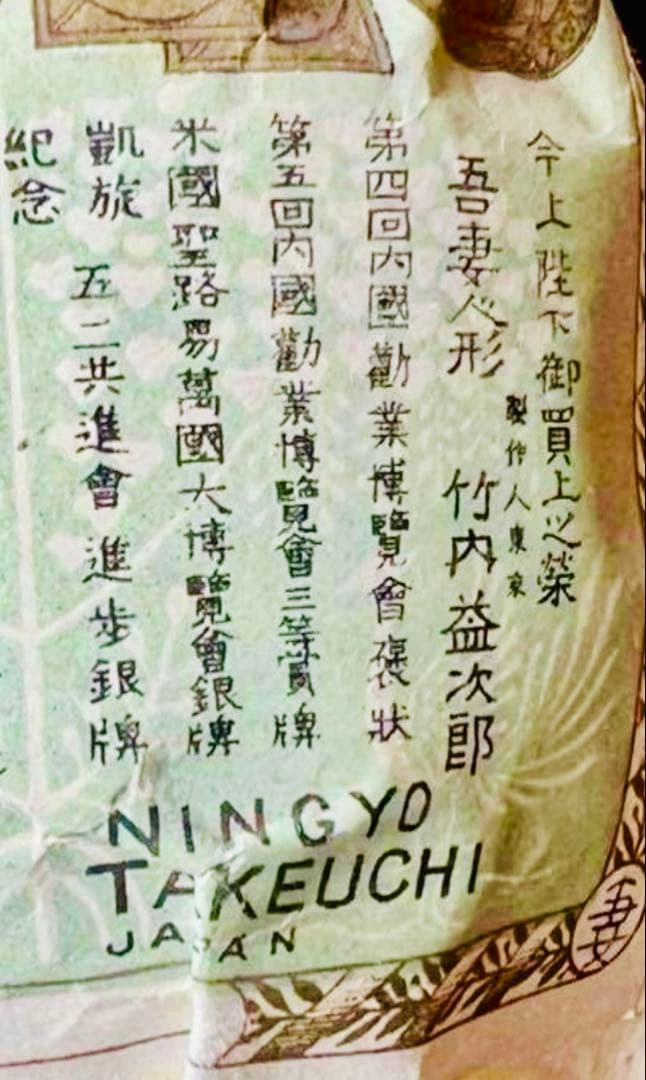 今上陛下御買上之榮
製作人東京
吾妻人形 竹内益次郎
第四回内國勸業博覽會褒狀
第五回内國勸業博覽會三等賞牌
米國聖路易萬國大博覽會銀牌
凱旋 五二共進會進步銀牌
紀念
NINGYO
TAKEUCHI
JAPAN
妻